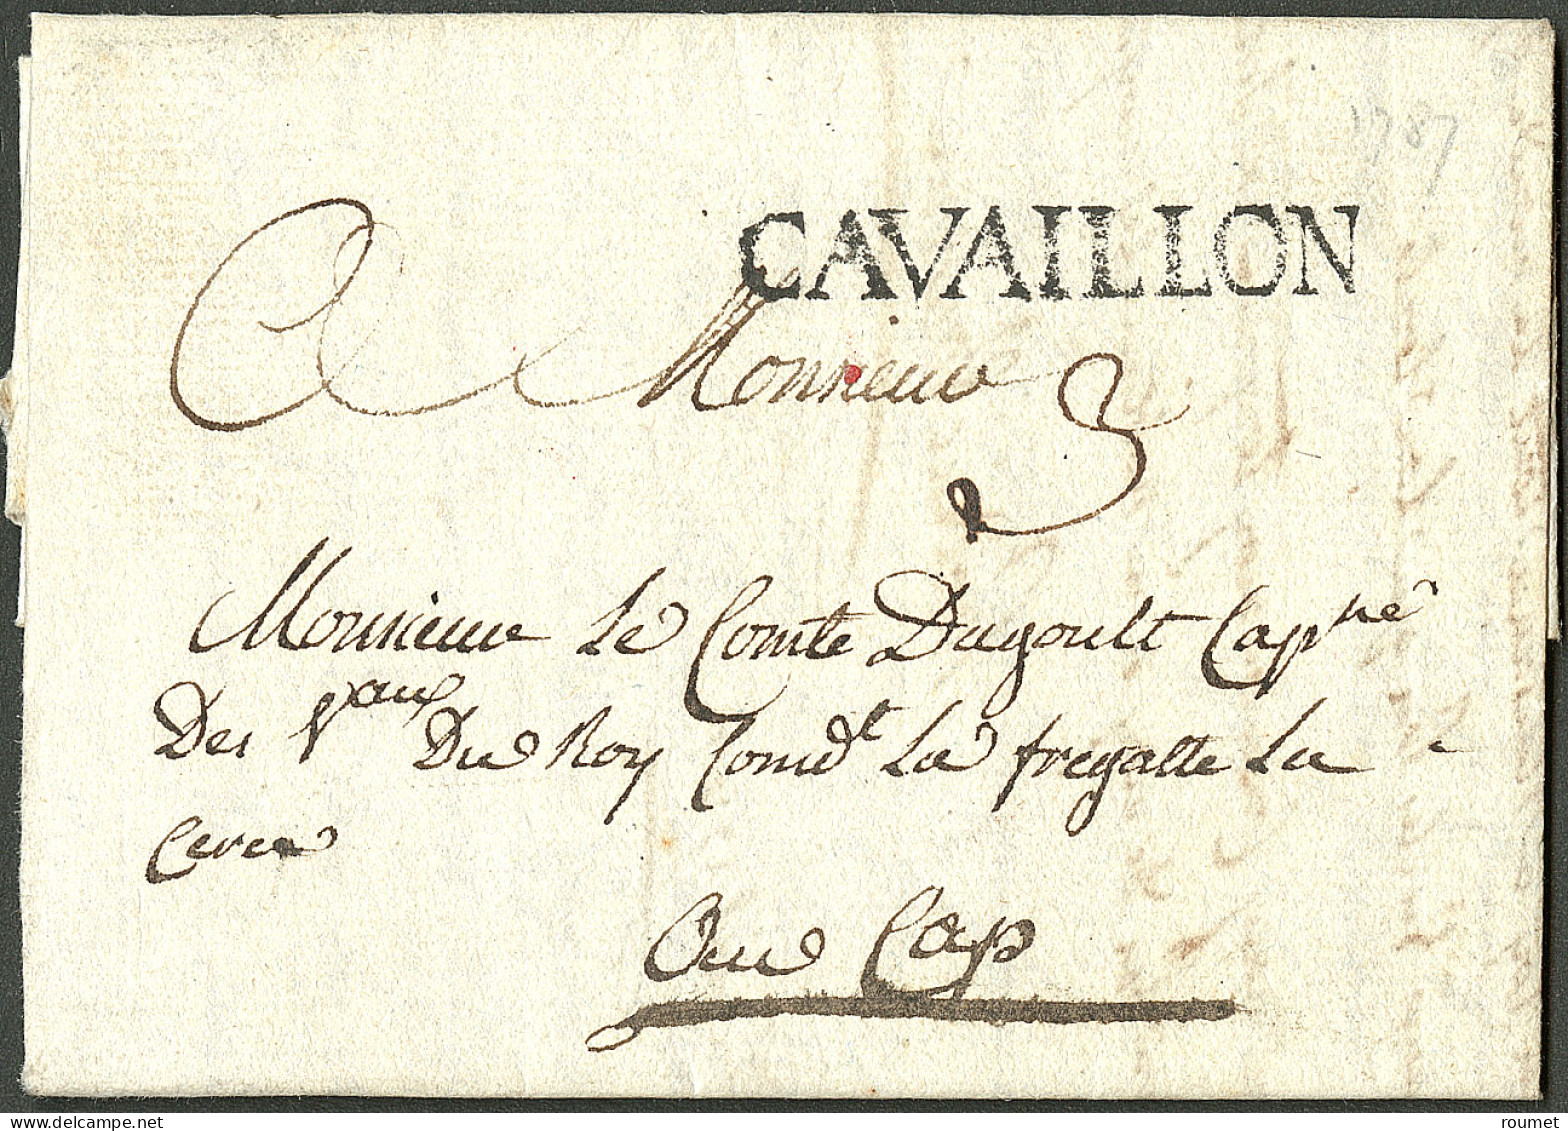 1787
CAVAILLON
A Monsieur
3
Monsieur Le Comte Dugoult Cap^ne
Des V^aux Du Roy Comd^t La fregatte La
Ceres
Au Cap
roumet